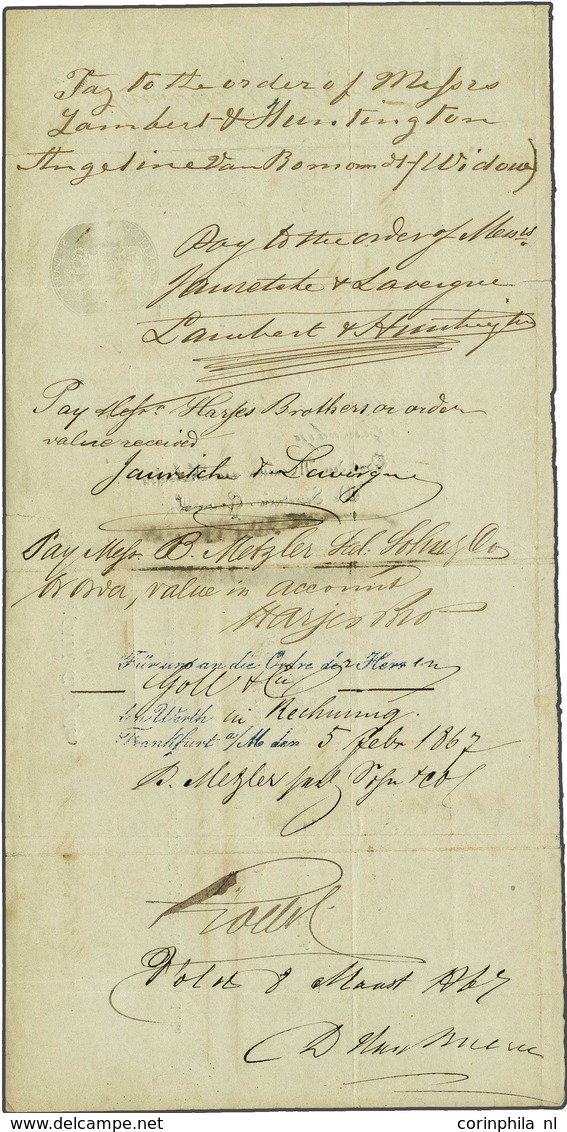 Pay to the order of Messrs
Lambert & Huntington
Angeline Van Romondt (Widow)
Pay to the order of Messrs
Jauretche & Lavergne
Lambert & Huntington
Pay Messrs Harjes Brothers or order
value received
Jauretche & Lavergne
Pay Messrs B. Metzler sel. Sohn & Co
or order, value in account
Harjes Bro
Für uns an die Ordre der Herren
Goll & Cie
den Werth in Rechnung.
Frankfurt a/M den 5 Febr 1867
B. Metzler sel Sohn & Co
8 Maart 1867
corinphila nl